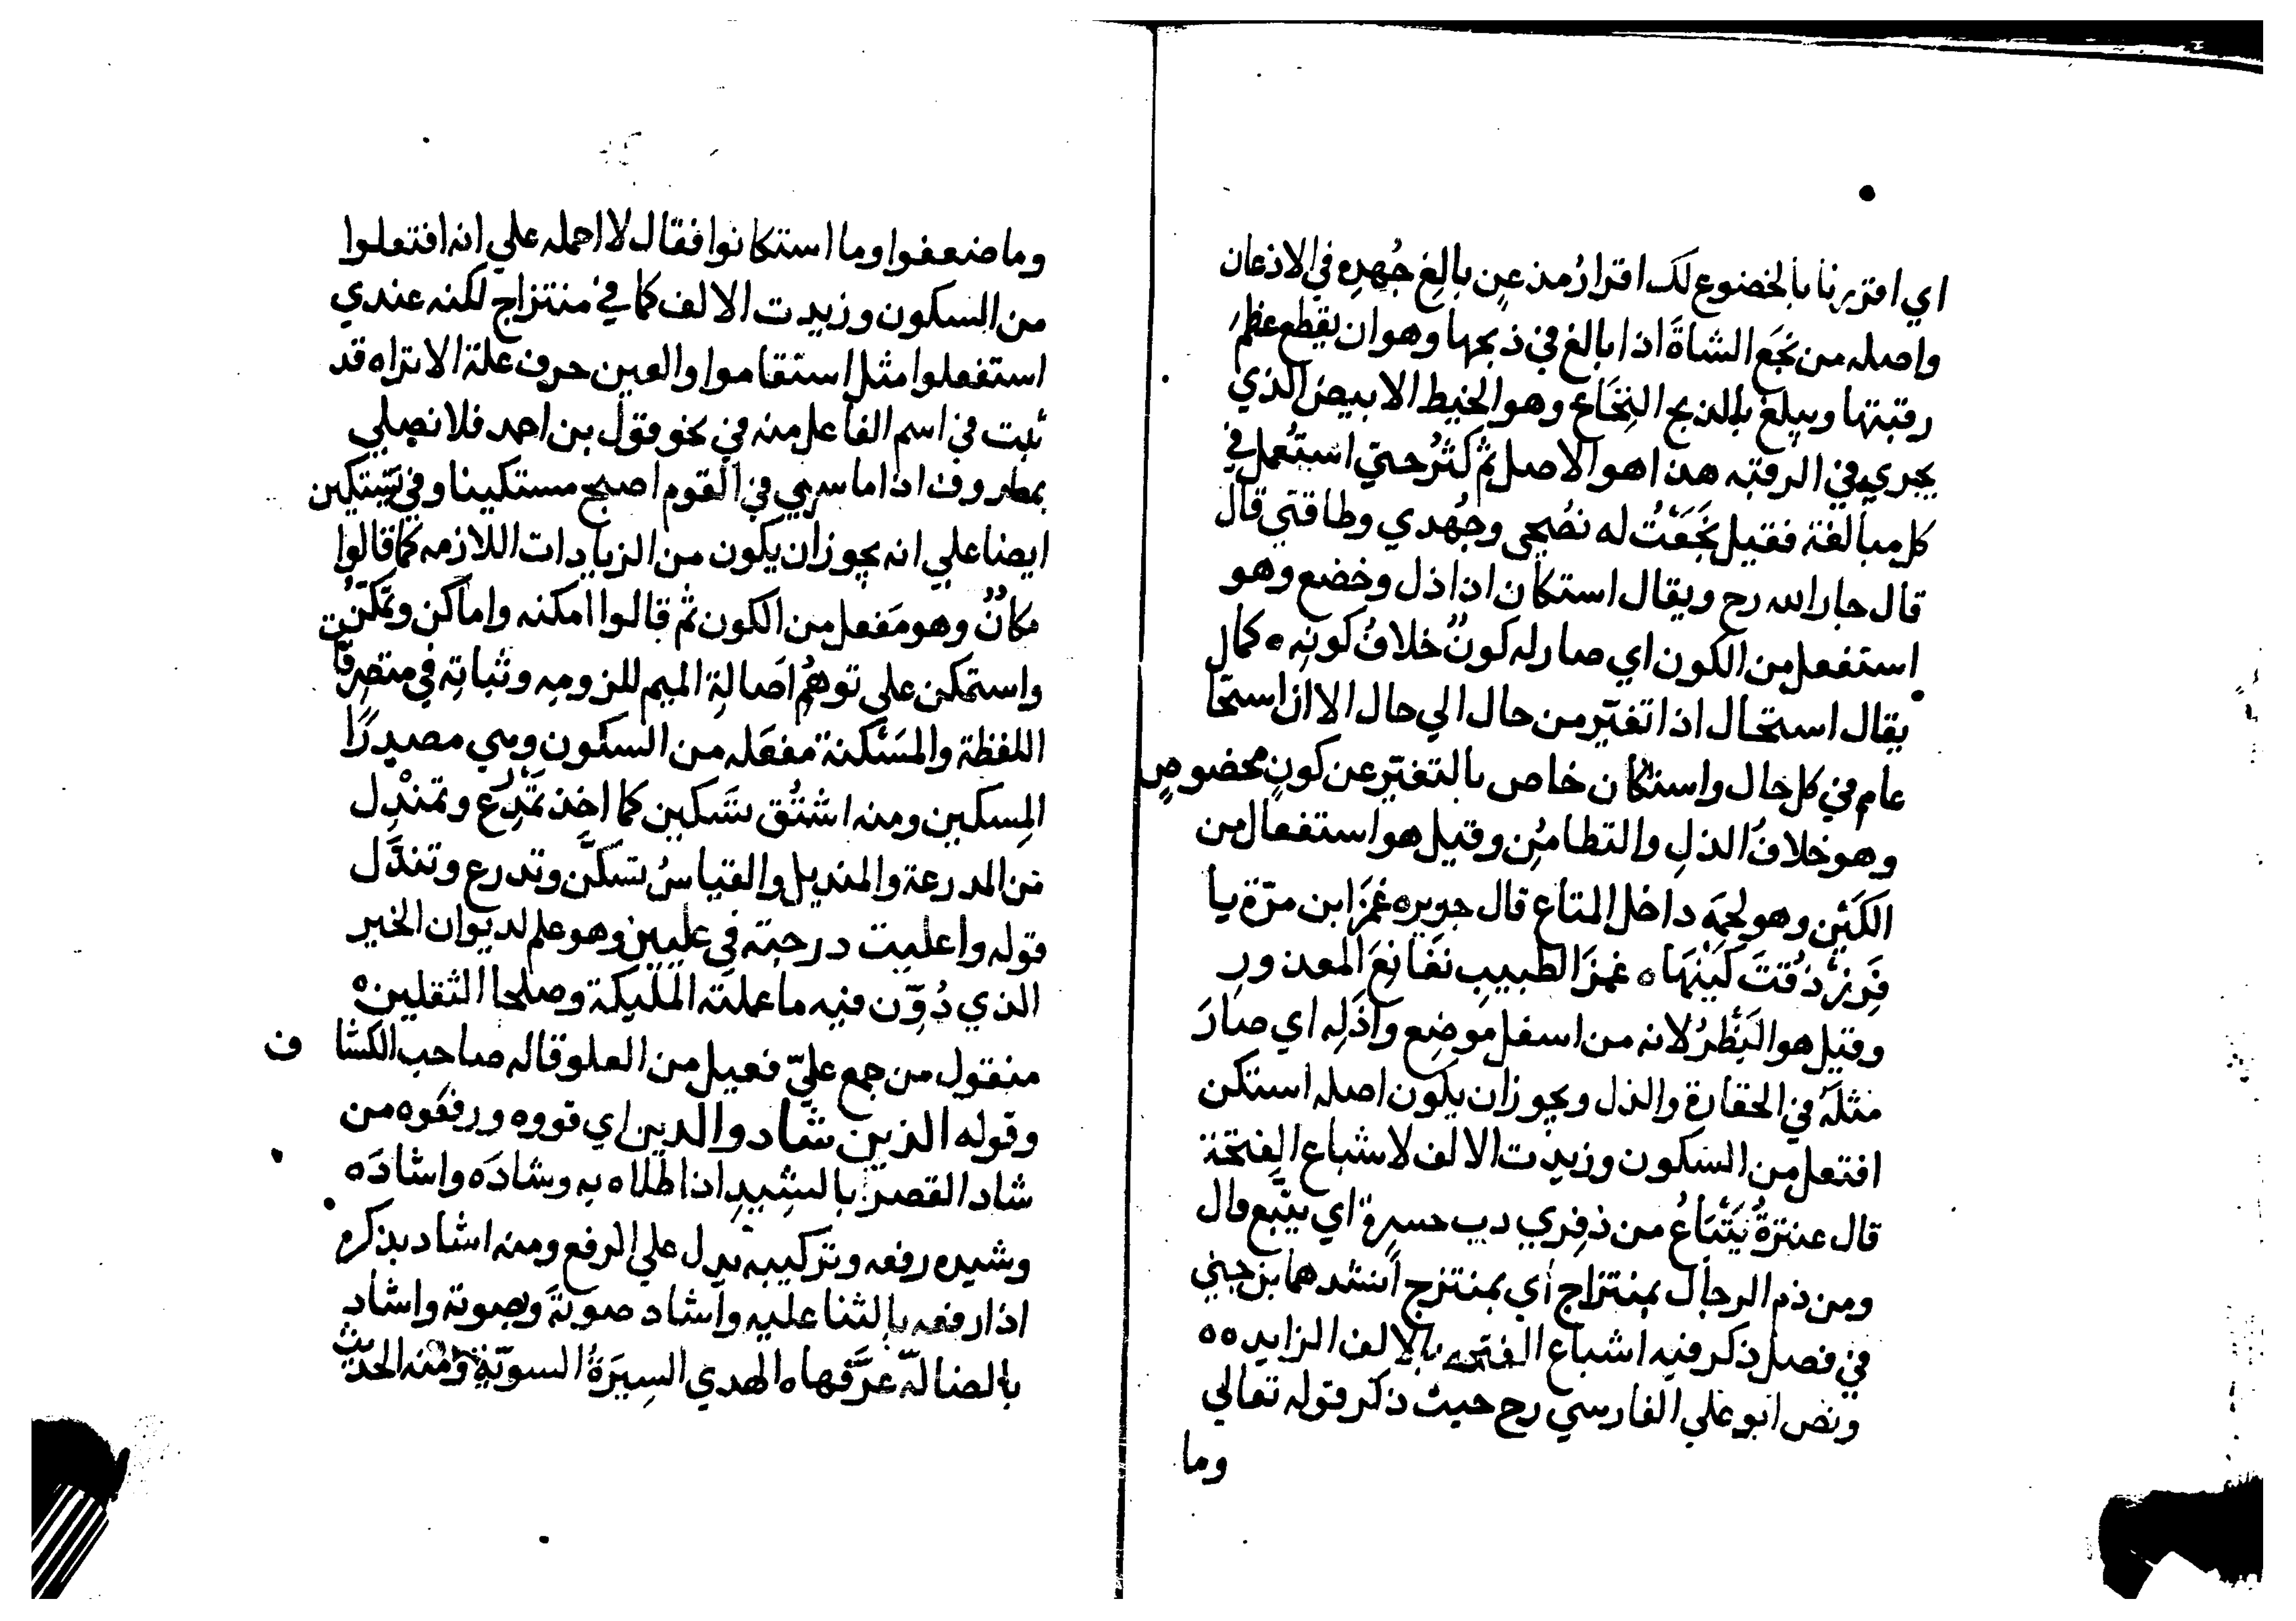 اي اقررنا بالخضوع لك اقرارُ مذعنٍ بالِغِ جُهدِه في الاذعان
واصله من نَخَع الشاةَ اذا بالغ في ذبحها وهو ان يقطع عظم
رقبتها ويبلغ بالذبح النِخَاع وهو الخيط الابيض الذي
يجري في الرقبه هذا هو الاصل ثم كَثُر حتي استُعمل في
كل مبالغة فقيل نَخَعْتُ له نصُحي وجُهدي وطاقتي قال
قال جار الله رح ويقال استكان اذا ذل وخضع وهو
استفعل من الكون اي صار له كونٌ خلافُ كونِه ه كمال
يقال استحال اذا تغيّر من حال الي حال الا ان استحا
عام في كل حال واستكان خاص بالتغيّر عن كونٍ مخصوصٍ
وهو خلافُ الذلِ والتطامُنِ وقيل هو استفعال من
الكَيْنِ وهو لحمَه داخل المتاع قال جرير ه غمَزَ ابن مرّة يا
فَرزدقُ كَيْنَهَا ه غمزَ الطبيبِ نَغَانِغَ المعذورِ
وقيل هو البَظْرُ لانه من اسفل موضِع واَذَلِه اي صارَ
مثلَه في الحقارة والذل ويجوز ان يكون اصله استكن
افتعل من السكون وزيدت الالف لاشباع الفتحة
قال عنترةُ يَنْبَاعُ من ذِفري اي ينبَع وقال
ومن ذم الرجال بمنتزاج أي بمنتزح أنشدهما بن جني
في فصل ذكر فيه اشباع الفتحه بالالف الزايده ه
ونص ابو علي الفارسي رح حيث ذكر قوله تعالي
وما
وما ضعفوا وما استكانوا فقال لا احمله علي انه افتعلوا
من السكون وزيدت الالف كما في منتزاج لكنه عندي
استفعلوا مثل استقاموا والعين حرف علة الا تراه قد
ثبت في اسم الفاعل منه في نحو قول بن احمر فلا تصلي
بمطروف اذا ما سري في القوم اصبح مستكينا وفي تستكين
ايضا علي انه يجوز ان يكون من الزيادات اللازمه كما قالوا
مكانٌ وهو مَفعل من الكون ثم قالوا امكنه واماكن وتمكّنت
واستمكن علي توهُّم اَصَالةِ الميم للزومِه وثباتِه في متصرفات
اللفظة والمَسْكنة مفعَله من السكون وسمي مصدرًا
المِسكين ومنه اشتُق تمَسكن كما اخذ تمَدْرَع وتمنْدل
من المدرعة والمنديل والقياسُ تسكَّن وتدرع وتندَّل
قوله واعليت درجته في عليين وهو علم لديوان الخير
الذي دُوّن فيه ما عملَتْه الملئِكة وصلحا الثقلين ه
منقول من جمع عليّ فعيل من العلو قاله صاحب الكشاف
وقوله الذين شادوا الدين اي قووه ورفعوه من
شاد القصر بالشِيدِ اذا طلاه به وشادَه واشادَه
وشيده رفعه وتركيبه يدل علي الرفع ومنه اشاد بذكره
اذا رفعه بالثنا عليه واشاد صوتَه وبصوته واشاد
بالضالّه عرَّفها ه الهدي السِيرَةُ السويّة ومنه الحديث